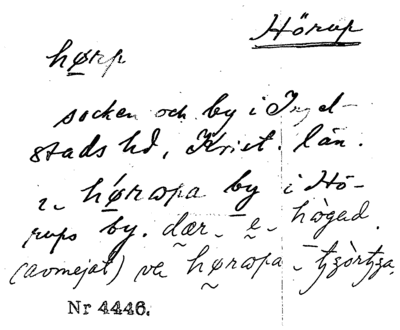 Hörup
hørp
socken och by i Ingel-
stads hd, Krist. län.
hørapa by i Hö-
rups by. dær e högad.
(avmejat) ve hørapa
Nr 4446.